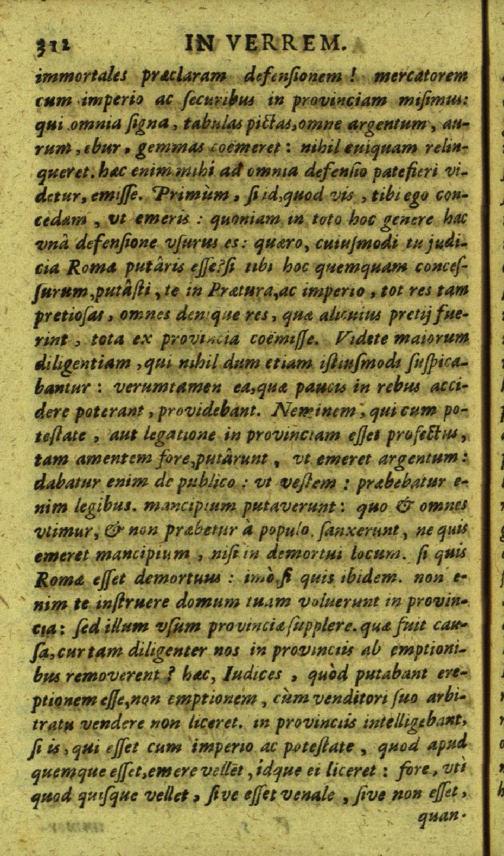 312 IN VERREM.
immortales præclaram defenſionem! mercatorem
cum imperio ac ſecuribus in provinciam miſimus:
qui omnia ſigna, tabulas pictas, omne argentum, au-
rum, ebur, gemmas coëmeret: nihil cuiquam relin-
queret. hæc enim mihi ad omnia defenſio patefieri vi-
detur, emiſſe. Primùm, ſi id, quod vis, tibi ego con-
cedam, vt emeris: quoniam in toto hoc genere hac
vnâ defenſione vſurus es: quæro, cuiuſmodi tu judi-
cia Romæ putâris eſſe? ſi tibi hoc quemquam conceſ-
ſurum, putâſti, te in Prætura, ac imperio, tot res tam
pretioſas, omnes denique res, quæ alicuius pretij fue-
rint, tota ex provincia coëmiſſe. Videte maiorum
diligentiam, qui nihil dum etiam iſtiuſmodi ſuſpica-
bantur: verumtamen ea, quæ paucis in rebus acci-
dere poterant, providebant. Neminem, qui cum po-
teſtate, aut legatione in provinciam eſſet profectus,
tam amentem fore, putârunt, vt emeret argentum:
dabatur enim de publico: vt veſtem: præbebatur e-
nim legibus. mancipium putaverunt: quo & omnes
vtimur, & non præbetur à populo. ſanxerunt, ne quis
emeret mancipium, niſi in demortui locum. ſi quis
Romæ eſſet demortuus: imò, ſi quis ibidem. non e-
nim te inſtruere domum tuam voluerunt in provin-
cia: ſed illum vſum provinciæ ſupplere. quæ fuit cau-
ſa, cur tam diligenter nos in provinciis ab emptioni-
bus removerent? hæc, Iudices, quòd putabant ere-
ptionem eſſe, non emptionem, cùm venditori ſuo arbi-
tratu vendere non liceret. in provinciis intelligebant,
ſi is, qui eſſet cum imperio ac poteſtate, quod apud
quemque eſſet, emere vellet, idque ei liceret: fore, vti
quod quiſque vellet, ſive eſſet venale, ſive non eſſet,
quan-